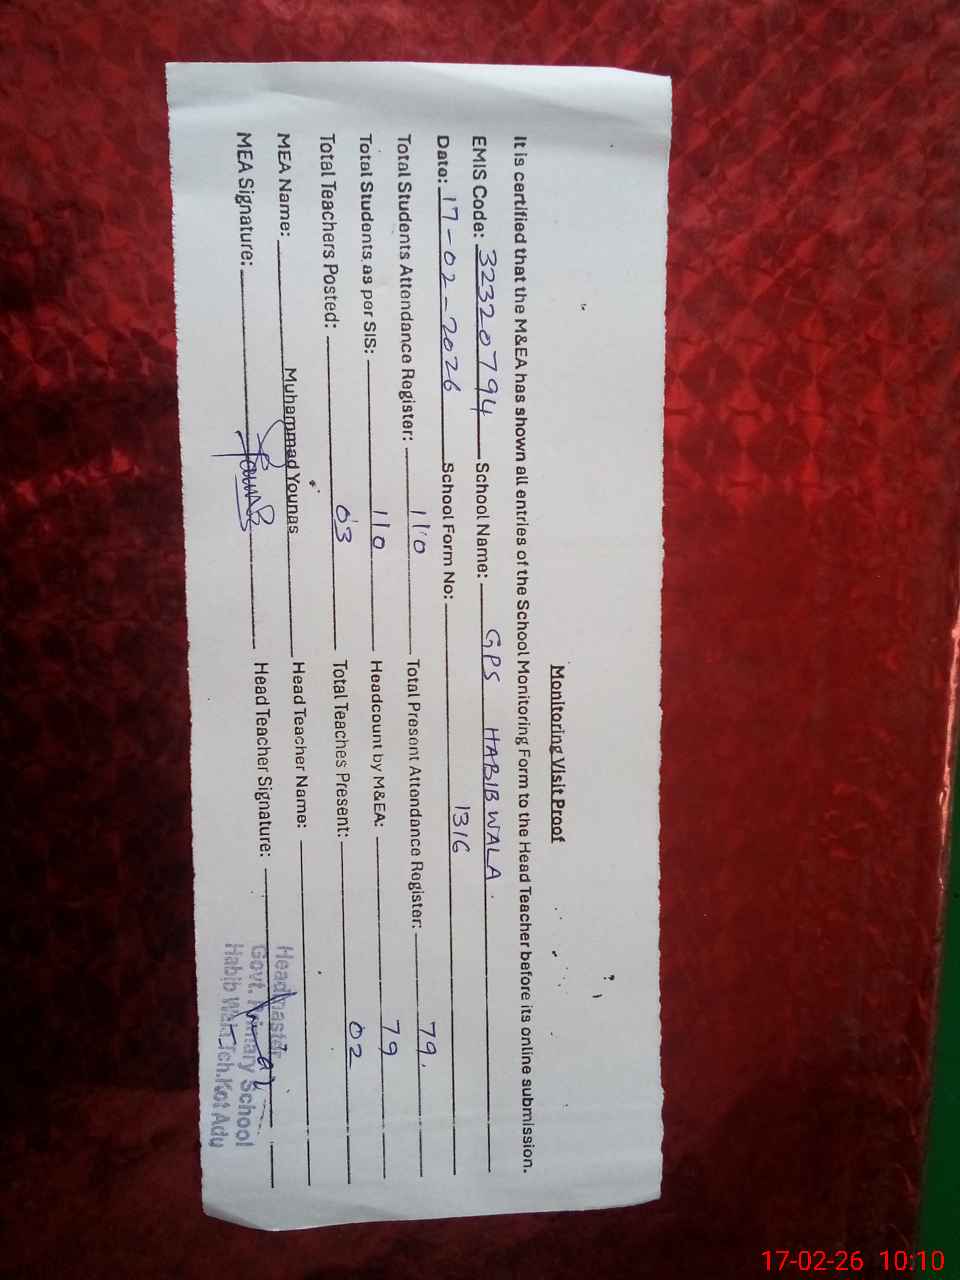 Monitoring Visit Proof
It is certified that the M&EA has shown all entries of the School Monitoring Form to the Head Teacher before its online submission.
EMIS Code: 32320794 School Name: GPS HABIB WALA.
Date: 17-02-2026 School Form No: 1316
Total Students Attendance Register: 110 Total Present Attendance Register: 79.
Total Students, as per SIS: 110 Headcount by M&EA: 79
Total Teachers Posted: 03 Total Teaches Present: 02
MEA Name: Muhammad Younas Head Teacher Name:
MEA Signature: Head Teacher Signature:
Headmaster
Govt. Primary School
Habib Wala Teh. Kot Adu
17-02-26 10:10